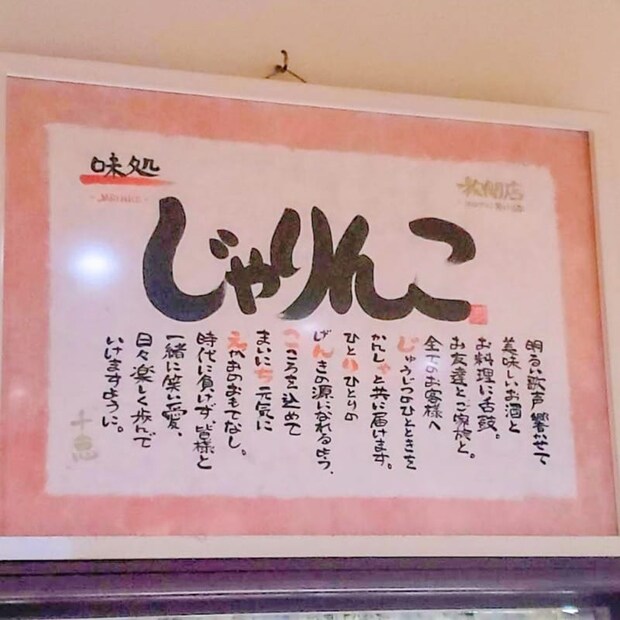 味処
じゃりんこ
明るい歌声響かせて
美味しいお酒と
お料理に舌鼓。
お友達とご家族と。
全てのお客様へ
じゅうじつのひとときを
かんしゃと共に届けます。
ひとりひとりの
げんきの源になれるよう、
こころを込めて
まいにち元気に
えがおのおもてなし。
時代に負けず皆様と
一緒に笑い愛、
日々楽しく歩んで
いけますように。
千恵